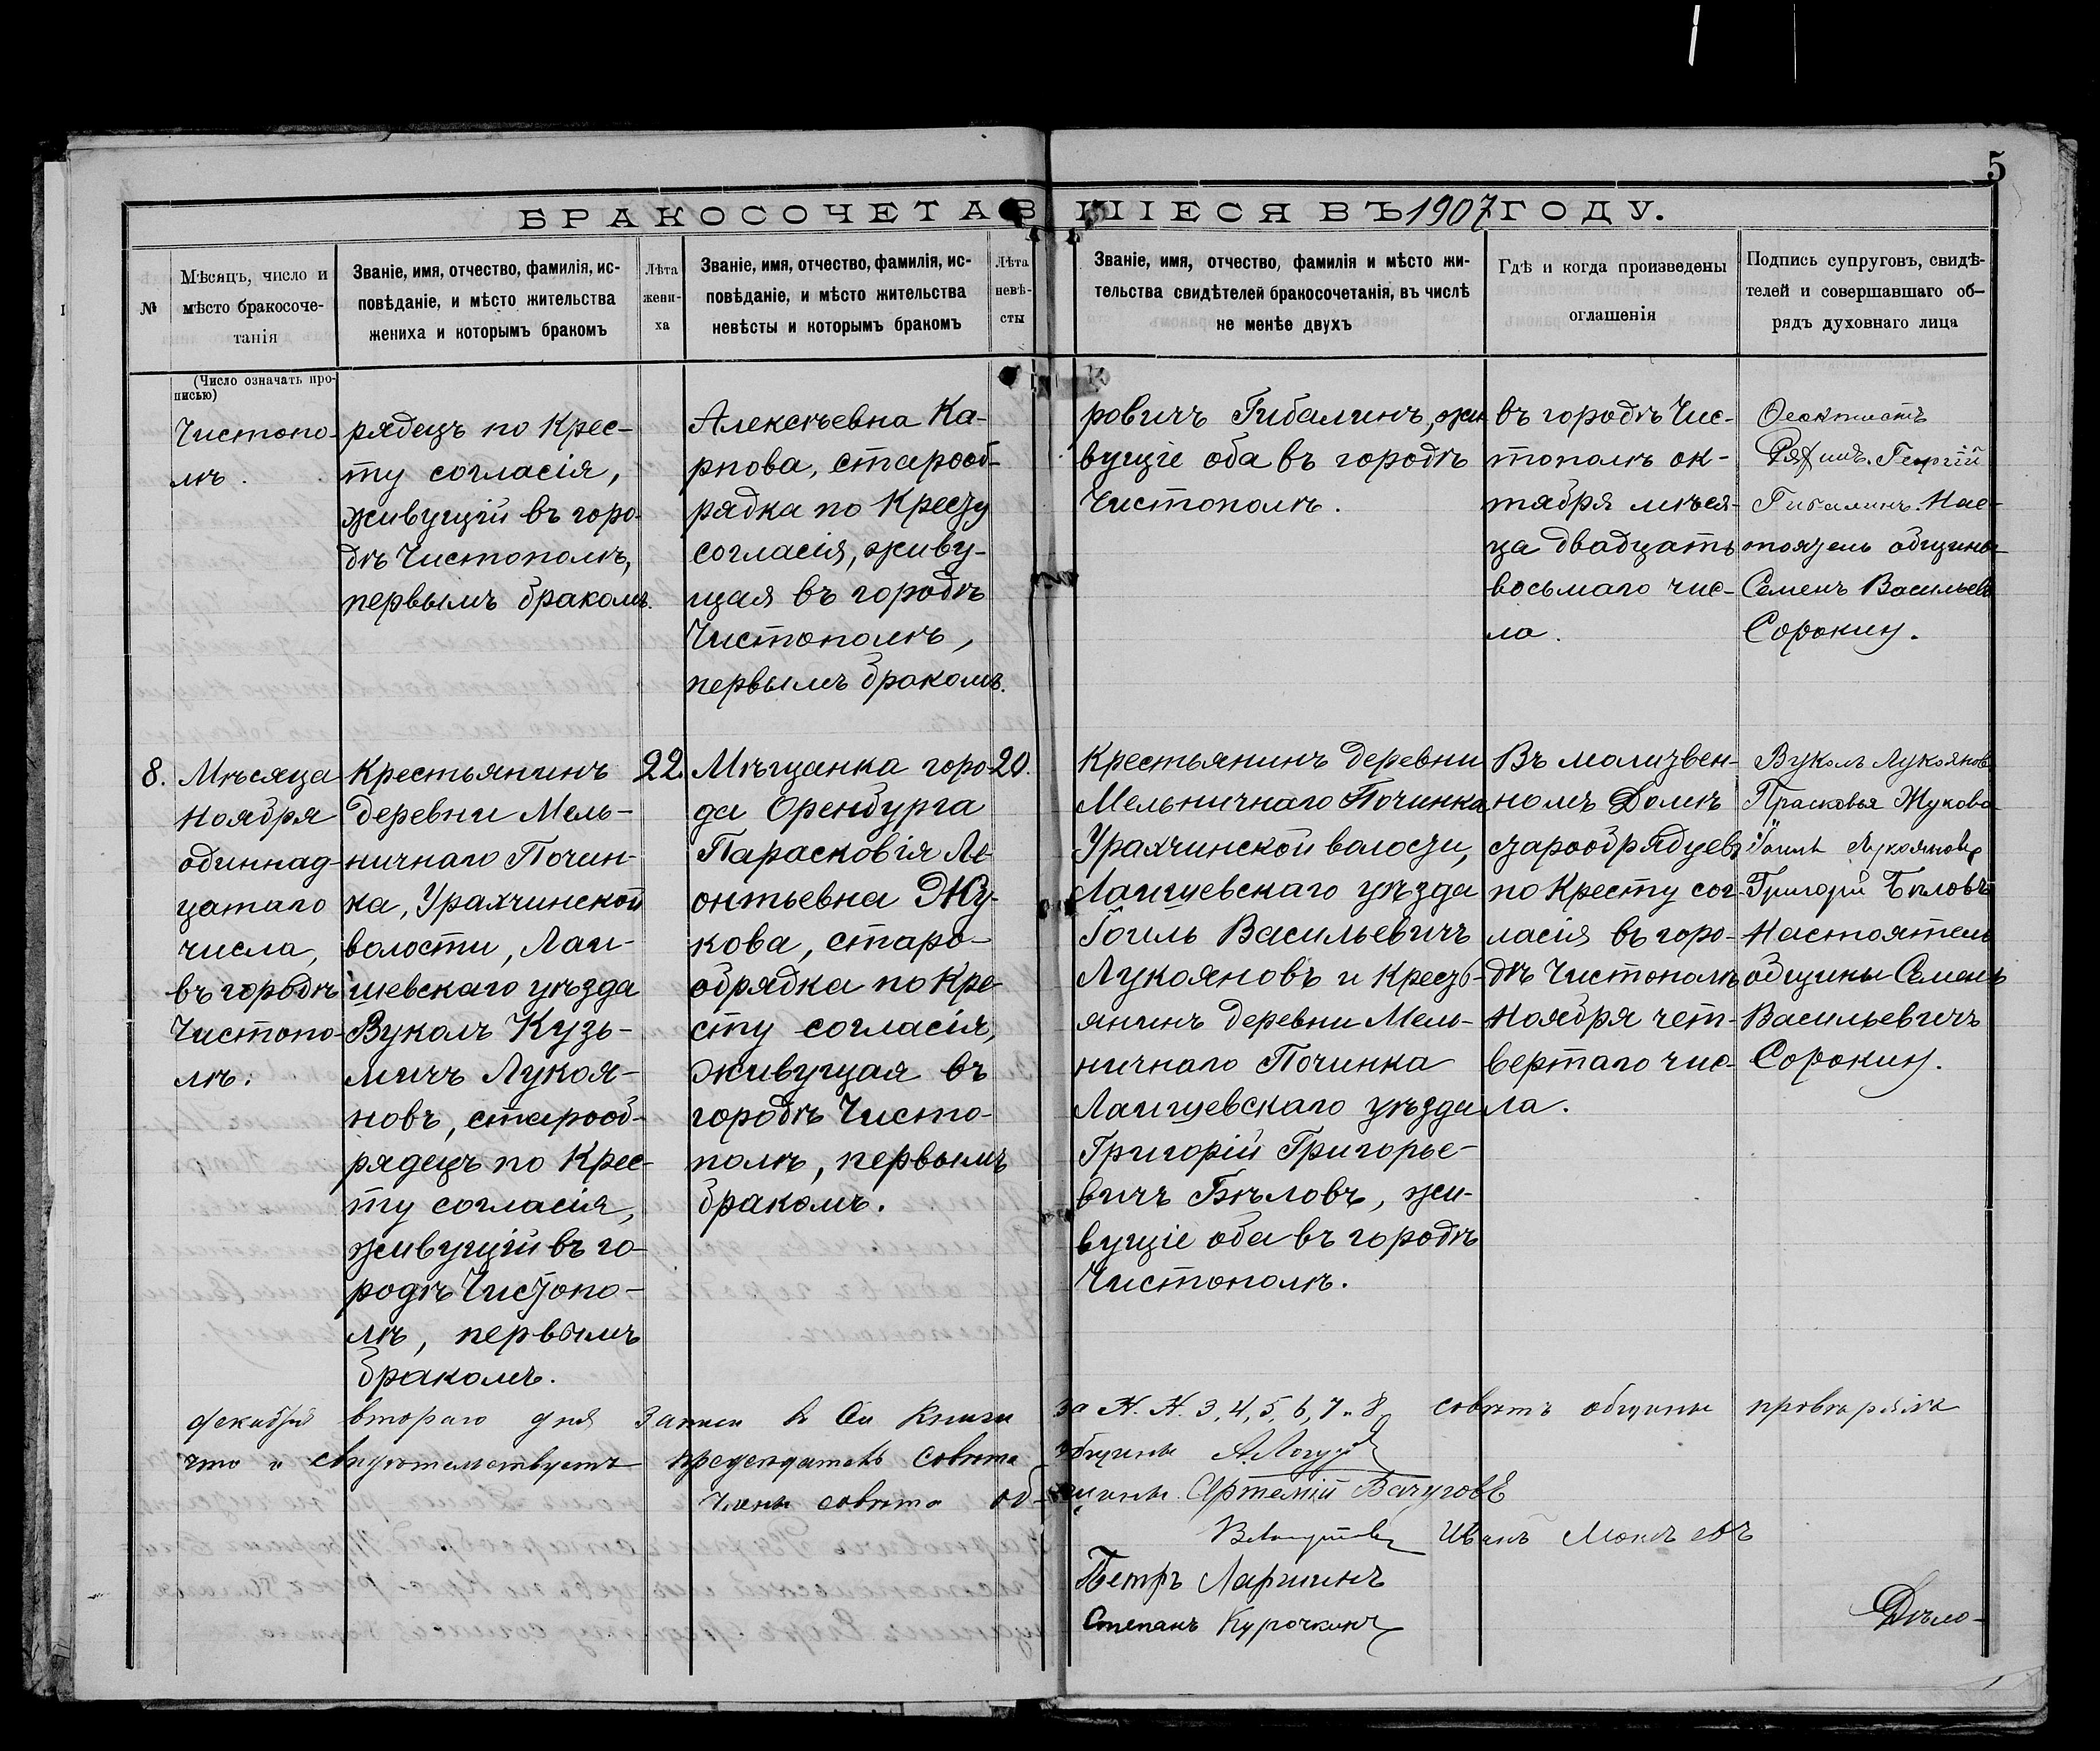 5
БРАКОСОЧЕТАВШІЕСЯ ВЪ 1907 ГОДУ.
№
Мѣсяцъ, число и
мѣсто бракосоче-
танія
Званіе, имя, отчество, фамилія, ис-
повѣданіе, и мѣсто жительства
жениха и которымъ бракомъ
Лѣта
жени-
ха
Званіе, имя, отчество, фамилія, ис-
повѣданіе, и мѣсто жительства
невѣсты и которымъ бракомъ
Лѣта
невѣ-
сты
Званіе, имя, отчество, фамилія и мѣсто жи-
тельства свидѣтелей бракосочетанія, въ числѣ
не менѣе двухъ
Гдѣ и когда произведены
оглашенія
Подпись супруговъ, свидѣ-
телей и совершавшаго об-
рядъ духовнаго лица
(Число означать про-
писью)
Чистопо-
лѣ.
рядецъ по Крес-
ту согласія,
живущій въ горо-
дѣ Чистополѣ,
первымъ бракомъ.
Алексѣевна Ка-
рпова, старооб-
рядка по Кресту
согласія, живу-
щая въ городѣ
Чистополѣ,
первымъ бракомъ.
ровичъ Гибалинъ, жи-
вущіе оба въ городѣ
Чистополѣ.
въ городѣ Чис-
тополѣ ок-
тября мѣся-
ца двадцать
восьмаго чис-
ла.
Феоктистъ
Георгій
Гибалинъ. Нас-
тоятель общины
Семенъ Васильевъ
Сорокин.
8.
Мѣсяца
Ноября
одиннад-
цатаго
числа,
въ городѣ
Чистопо-
лѣ.
Крестьянинъ
деревни Мель-
ничнаго Почин-
ка, Урахчинской
волости, Лаи-
шевскаго уѣзда
Вуколъ Кузь-
мичъ Лукоя-
новъ, старооб-
рядецъ по Крес-
ту согласія,
живущій въ го-
родѣ Чистопо-
лѣ, первымъ
бракомъ.
22.
Мѣщанка горо-
да Оренбурга
Парасковія Ле-
онтьевна Жу-
кова, старо-
обрядка по Кре-
сту согласія,
живущая въ
городѣ Чисто-
полѣ, первымъ
бракомъ.
20.
Крестьянинъ деревни
Мельничнаго Починка
Урахчинской волости,
Лаишевскаго уѣзда
Іоиль Васильевичъ
Лукояновъ и Кресть-
янинъ деревни Мель-
ничнаго Починка
Лаишевскаго уѣзда
Григорій Григорье-
вичъ Бѣловъ, жи-
вущіе оба въ городѣ
Чистополѣ.
Въ молитвен-
номъ Домѣ
старообрядцевъ
по Кресту сог-
ласія въ горо-
дѣ Чистополѣ
Ноября чет-
вертаго чис-
ла.
Вуколъ Лукоянов
Прасковья Жукова
Іоиль Лукояновъ
Григорій Бѣловъ
Настоятель
общины Семенъ
Васильевичъ
Сорокин.
декабря втораго дня записи въ сей книги за N. N. 3, 4, 5, 6, 7 и 8 совѣтъ общины провѣрялъ
что и свидѣтельствуетъ предсѣдатель совѣта общины
Члены совѣта общины Артемій Вачуговъ
Иванъ
Петръ Ларшинъ
Степанъ Курочкинъ
Дѣло-